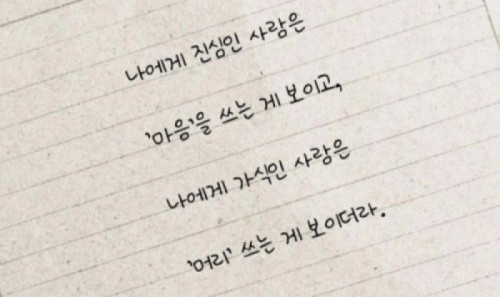 나에게 진심인 사람은
'마음'을 쓰는 게 보이고,
나에게 가식인 사람은
'머리' 쓰는 게 보이더라.